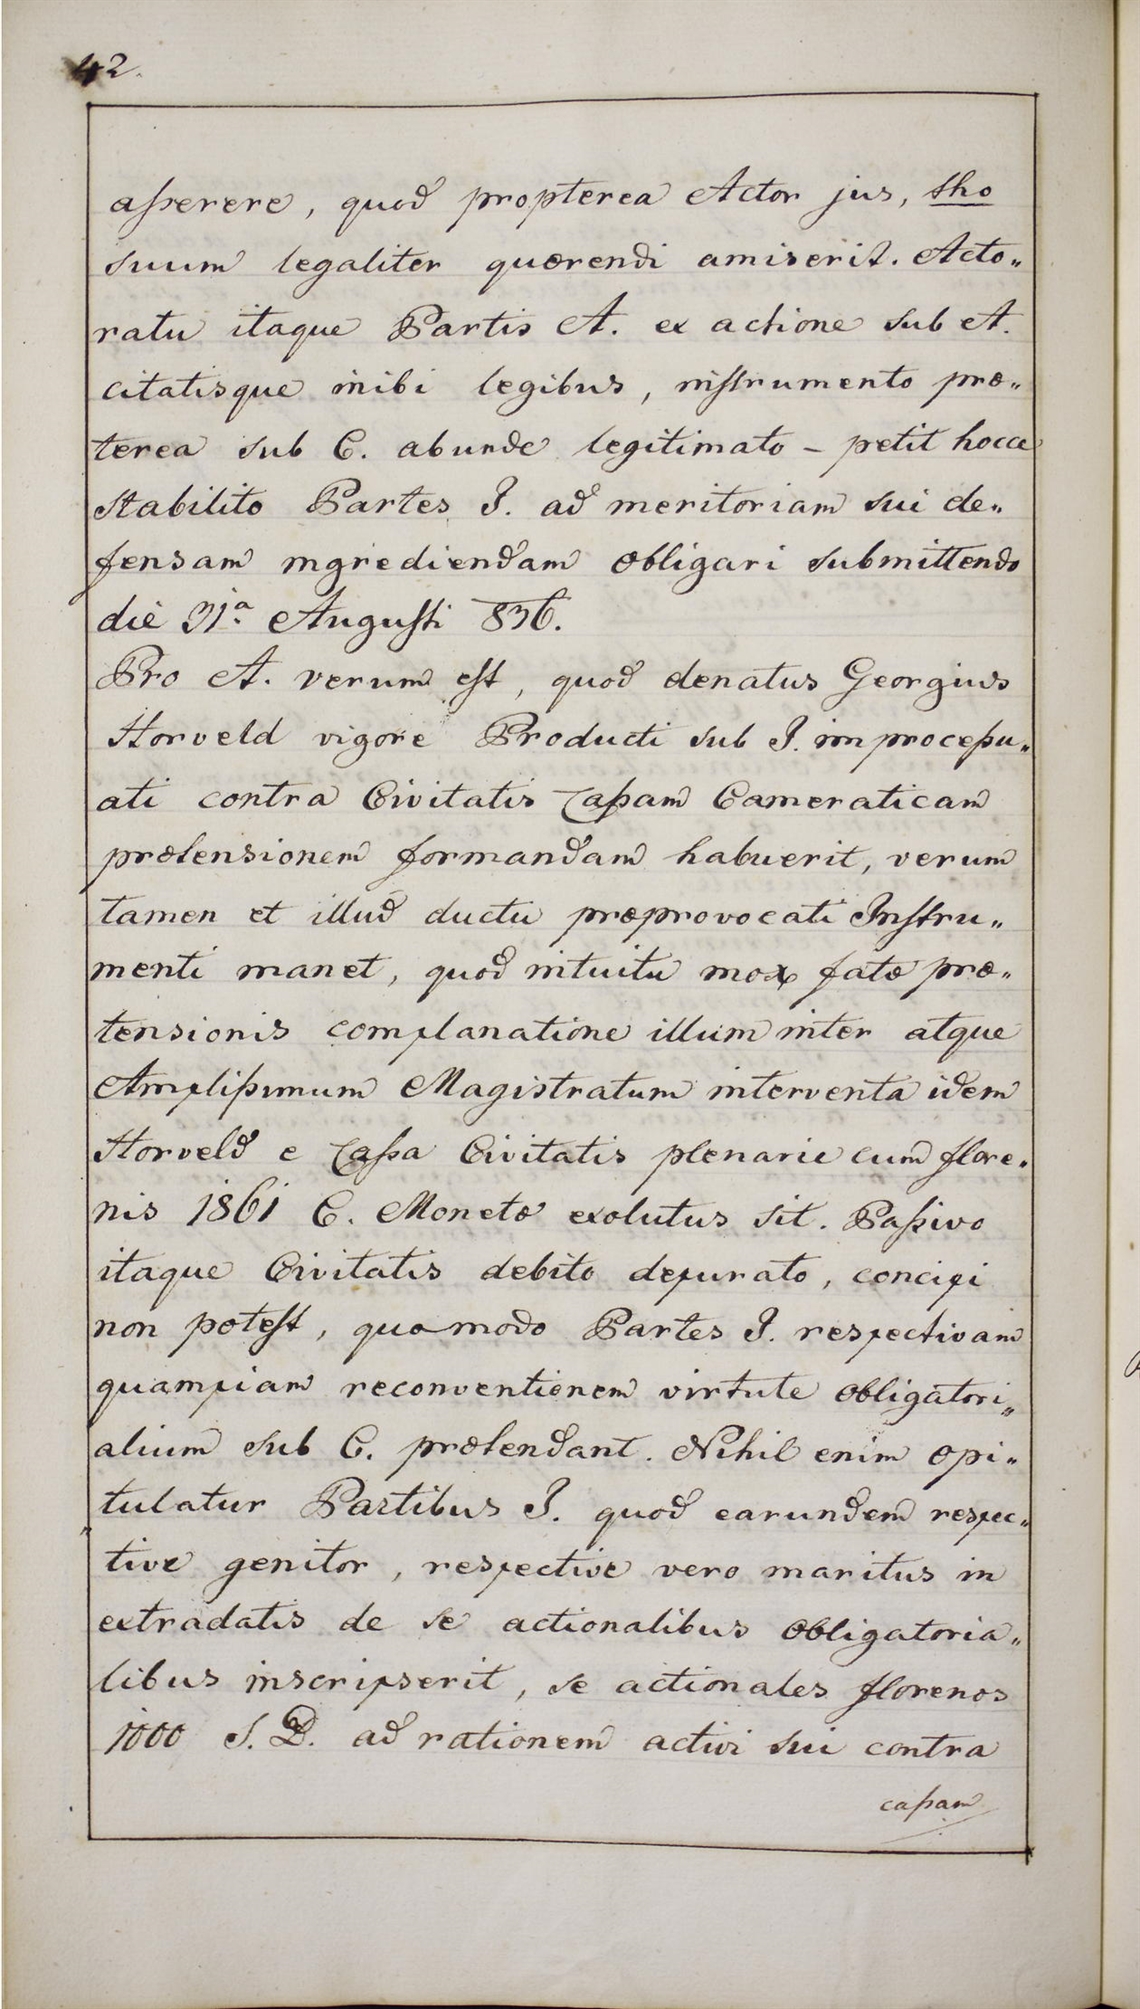 42.
asserere, quod propterea Actor jus, sho
suum legaliter quærendi amiserit. Acto„
ratu itaque Partis A. ex actione sub A.
citatisque inibi legibus, instrumento præ„
terea sub C. abunde legitimato – petit hocce
stabilito Partes I. ad meritoriam sui de„
fensam ingrediendam obligari submittendo
die 31a Augusti 836.
Pro A. verum est, quod denatus Georgius
Horveld vigore Producti sub I. improcessu„
ati contra Civitatis Cassam Cameraticam
prætensionem formandam habuerit, verum
tamen et illud ductu præprovocati Instru„
menti manet, quod intuitu mox fatæ præ„
tensionis complanatione illum inter atque
Amplissimum Magistratum interventa idem
Horveld e Cassa Civitatis plenarie cum flore„
nis 1861 C. Monetæ exolutus sit. Passivo
itaque Civitatis debito depurato, concipi
non potest, quomodo Partes I. respectivam
quampiam reconventionem virtute obligatori„
alium sub C. prætendant. Nihil enim opi„
tulatur Partibus I. quod earundem respec„
tive genitor, respective vero maritus in
extradatis de se actionalibus obligatoria„
libus inscripserit, se actionales florenos
1000 S. D. ad rationem activi sui contra
cassam